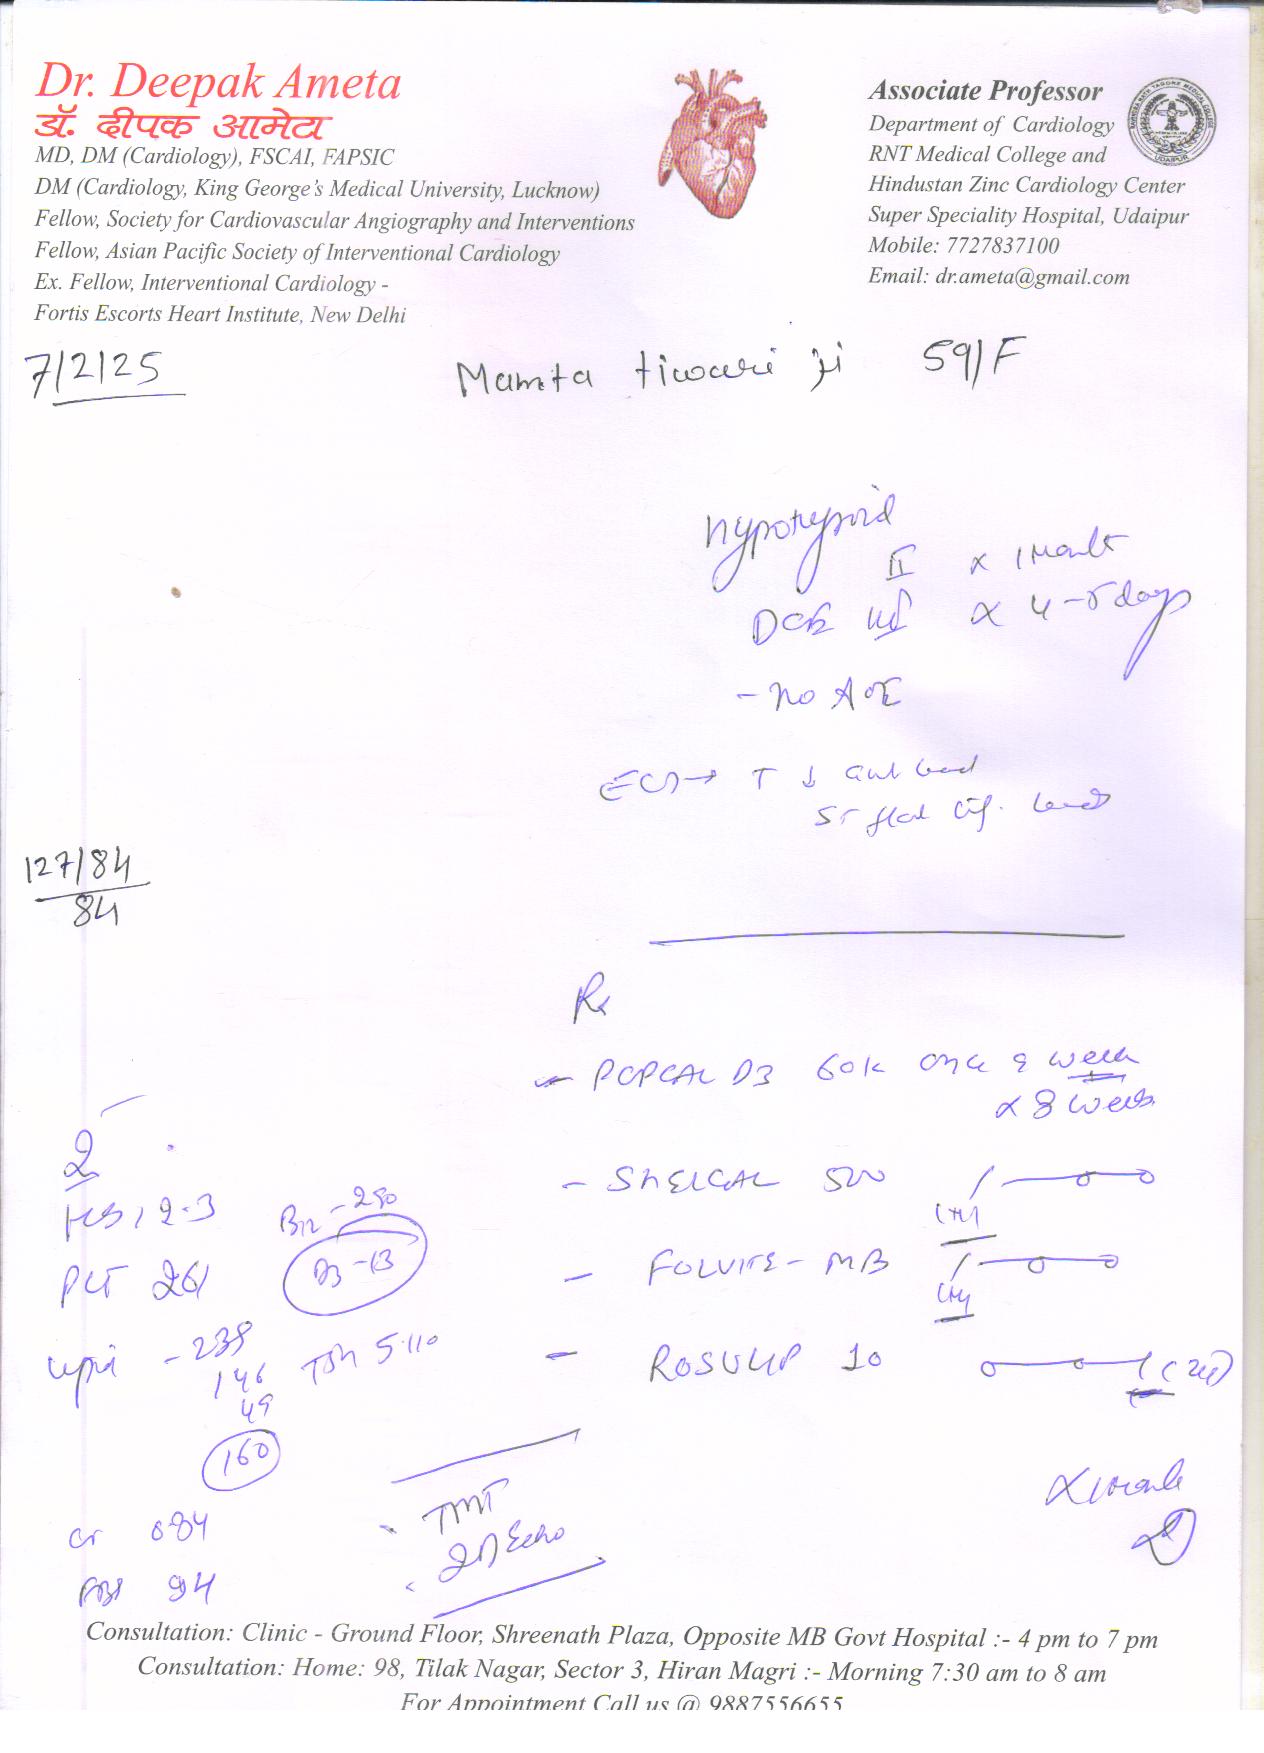 Dr. Deepak Ameta
डॉ. दीपक आमेटा
MD, DM (Cardiology), FSCAI, FAPSIC
DM (Cardiology, King George's Medical University, Lucknow)
Fellow, Society for Cardiovascular Angiography and Interventions
Fellow, Asian Pacific Society of Interventional Cardiology
Ex. Fellow, Interventional Cardiology -
Fortis Escorts Heart Institute, New Delhi
Associate Professor
Department of Cardiology
RNT Medical College and
Hindustan Zinc Cardiology Center
Super Speciality Hospital, Udaipur
Mobile: 7727837100
Email: dr.ameta@gmail.com
RABINDRA NATH TAGORE MEDICAL COLLEGE
UDAIPUR
7/2/25
Mamta tiwari ji 59/F
hypothyroid
II x 1 Month
DOE III x 4-5 days
- no AOE
ECG → T ↓ lead
ST flat inf. leads
127/84
84
Rx
- POPCAL D3 60K once a week
x 8 weeks
- SHELCAL 500
- FOLVITE - MB
- ROSULIP 10
x 1 month
Hb 12.3
B12 - 280
D3 - 13
PLT 261
lipid - 238
146
49
160
TSH 5.110
Cr 0.84
FBS 94
- TMT
- 2D Echo
Consultation: Clinic - Ground Floor, Shreenath Plaza, Opposite MB Govt Hospital :- 4 pm to 7 pm
Consultation: Home: 98, Tilak Nagar, Sector 3, Hiran Magri :- Morning 7:30 am to 8 am
For Appointment Call us @ 9887556655